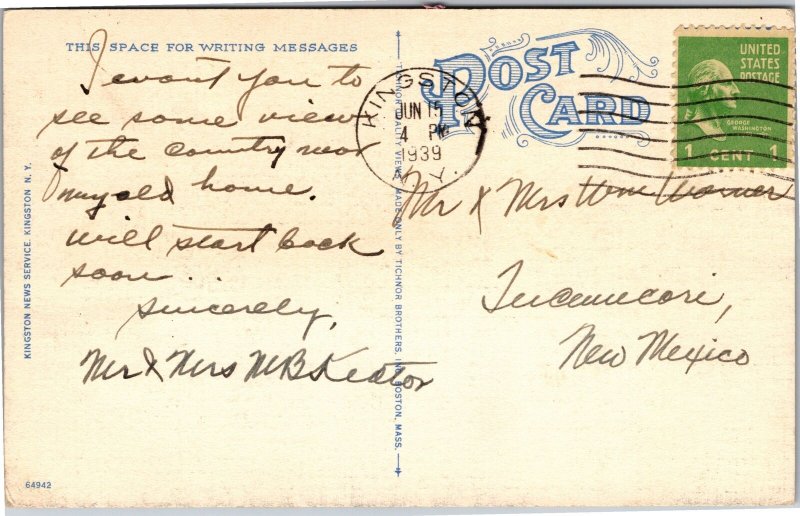 THIS SPACE FOR WRITING MESSAGES
I want you to
see some view
of the country near
my old home.
Will start back
soon...
Sincerely,
Mr & Mrs M B Keator
KINGSTON NEWS SERVICE, KINGSTON N.Y.
64942
TICHNOR QUALITY VIEWS, MADE ONLY BY TICHNOR BROTHERS, INC., BOSTON, MASS.
POST
CARD
KINGSTON
JUN 15
4 PM
1939
N.Y.
UNITED
STATES
POSTAGE
GEORGE
WASHINGTON
1 CENT 1
Mr & Mrs Wm Warner
Tucumcari,
New Mexico